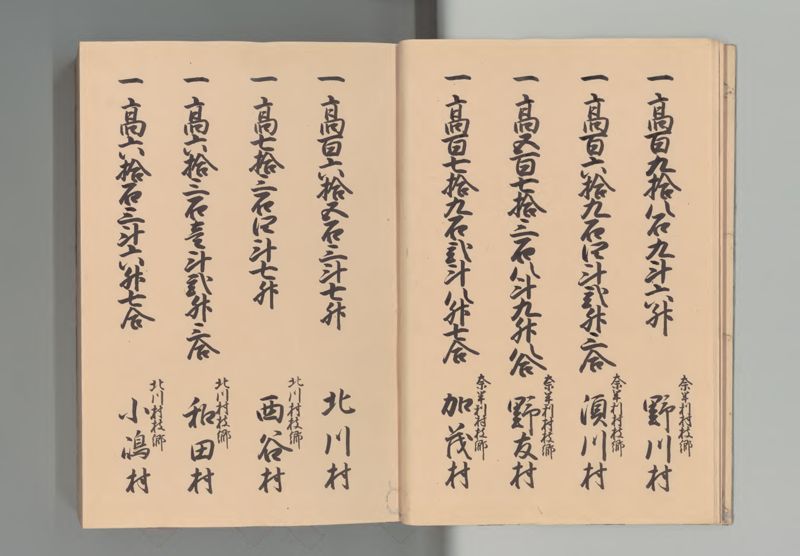 一高百九拾八石九斗六升
奈半利村枝郷
野川村
一高百六拾九石四斗弐升三合
奈半利村枝郷
須川村
一高五百七拾三石八斗九升八合
奈半利村枝郷
野友村
一高百七拾九石弐斗八升七合
奈半利村枝郷
加茂村
一高百六拾五石三斗七升
北川村
一高七拾三石四斗七升
北川村枝郷
西谷村
一高六拾三石壱斗弐升三合
北川村枝郷
和田村
一高六拾石三斗六升七合
北川村枝郷
小嶋村